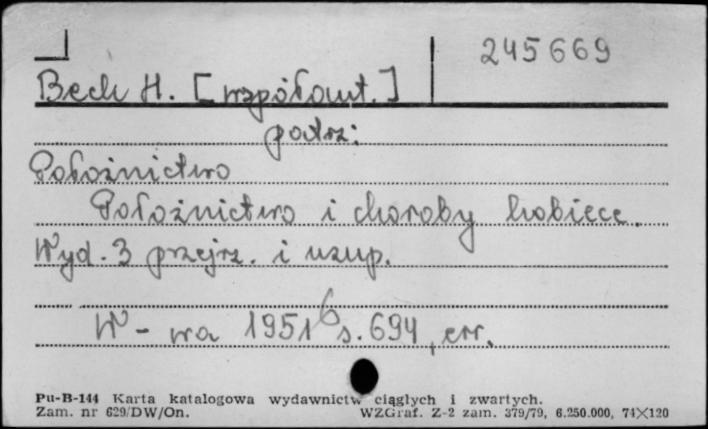 245669
Beck H. [współaut.]
patrz:
Położnictwo
Położnictwo i choroby kobiece.
Wyd. 3 przejrz. i uzup.
W-wa 1951 6 s. 694, err.
Pu-B-144 Karta katalogowa wydawnictw ciągłych i zwartych.
Zam. nr 629/DW/On. WZGraf. Z-2 zam. 379/79, 6.250.000, 74×120